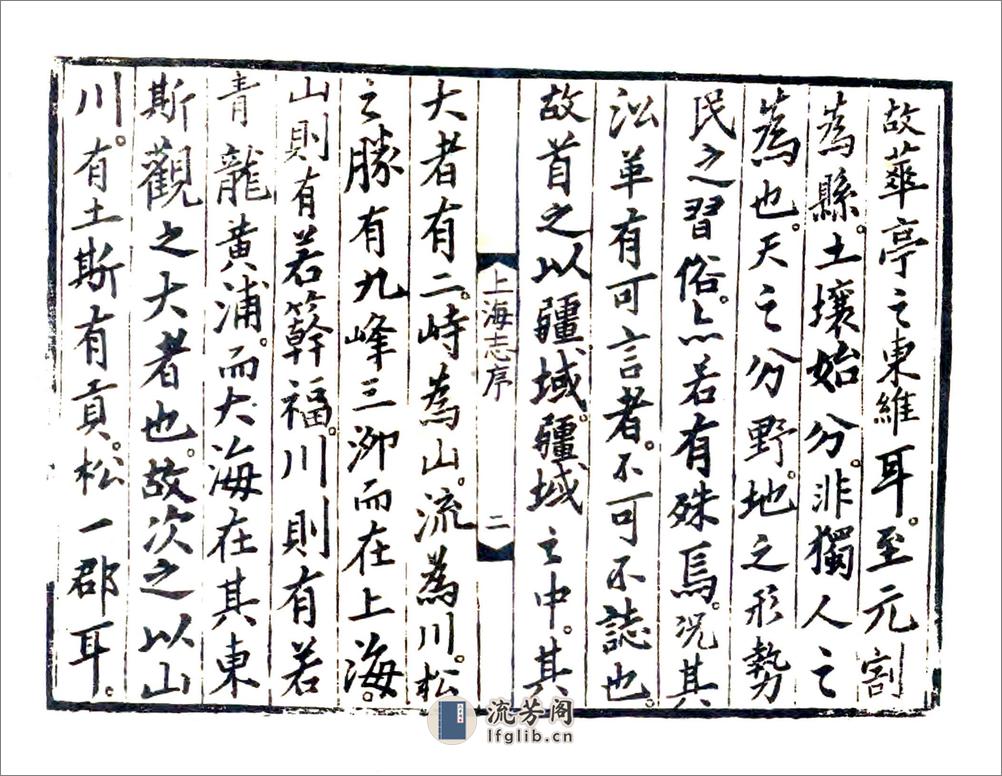 故華亭之東維耳。至元割
為縣。土壤始分。非獨人之
為也。天之分野。地之形勢
民之習俗。亦若有殊焉。况其
沿革有可言者。不可不誌也。
故首之以疆域。疆域之中。其
上海志序 二
大者有二。峙為山。流為川。松
之勝有九峰三泖而在上海。
山則有若簳福。川則有若
青龍黃浦。而大海在其東
斯觀之大者也。故次之以山
川。有土斯有貢。松一郡耳。
流芳阁
lfglib.cn